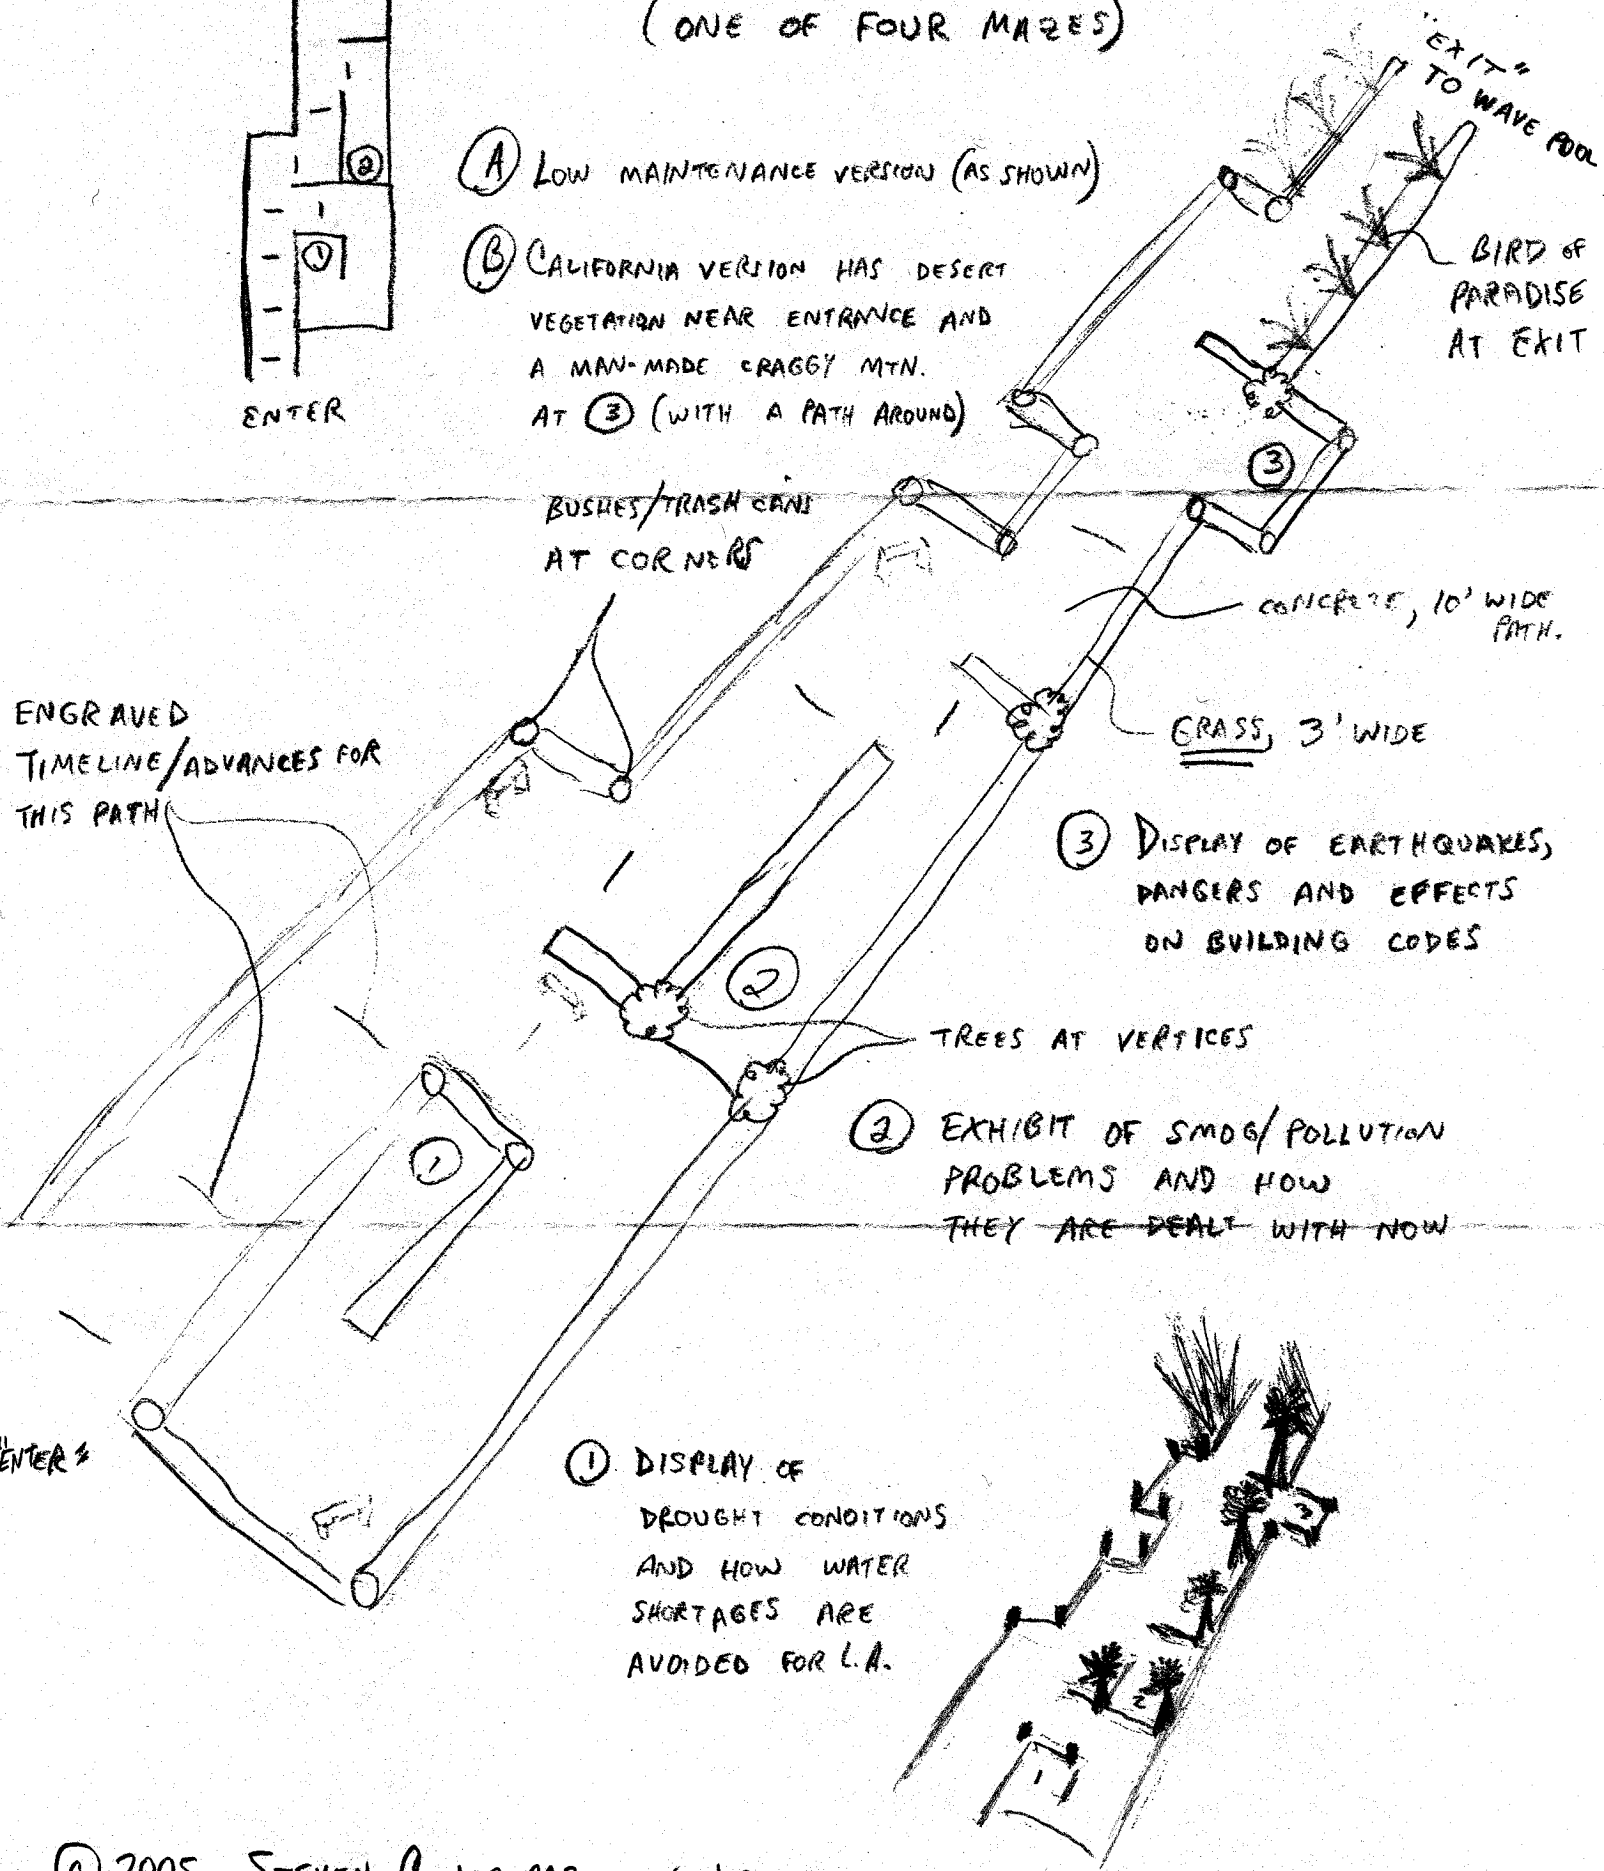 (ONE OF FOUR MAZES)
"EXIT"
TO WAVE POOL
2
1
ENTER
A LOW MAINTENANCE VERSION (AS SHOWN)
B CALIFORNIA VERSION HAS DESERT
VEGETATION NEAR ENTRANCE AND
A MAN-MADE CRAGGY MTN.
AT 3 (WITH A PATH AROUND)
BIRD OF
PARADISE
AT EXIT
3
BUSHES/TRASH CANS
AT CORNERS
CONCRETE, 10' WIDE
PATH.
ENGRAVED
TIMELINE/ADVANCES FOR
THIS PATH
GRASS, 3' WIDE
3 DISPLAY OF EARTHQUAKES,
DANGERS AND EFFECTS
ON BUILDING CODES
2
TREES AT VERTICES
1
2 EXHIBIT OF SMOG/POLLUTION
PROBLEMS AND HOW
THEY ARE DEALT WITH NOW
"ENTER"
1 DISPLAY OF
DROUGHT CONDITIONS
AND HOW WATER
SHORTAGES ARE
AVOIDED FOR L.A.
3
2
1
© 2005 STEVEN